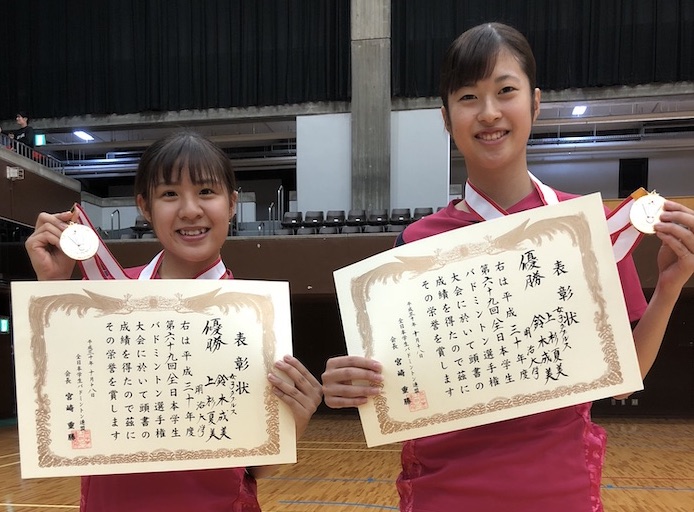 表彰状
女子ダブルス
優勝
鈴木成美
上杉夏美
明治大学
右は平成三十年度
第六十九回全日本学生
バドミントン選手権
大会に於いて頭書の
成績を得たので茲に
その栄誉を賞します
平成三十年十月十八日
全日本学生バドミントン連盟
会長 宮崎重勝
表彰状
女子ダブルス
優勝
上杉夏美
鈴木成美
明治大学
右は平成三十年度
第六十九回全日本学生
バドミントン選手権
大会に於いて頭書の
成績を得たので茲に
その栄誉を賞します
平成三十年十月十八日
全日本学生バドミントン連盟
会長 宮崎重勝